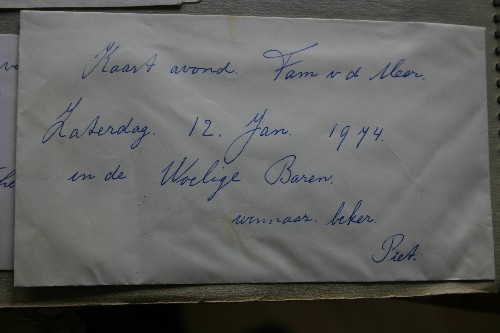 Kaart avond. Fam v d Meer.
Zaterdag. 12. Jan. 1974.
in de Woelige Baren.
winnaar. beker.
Piet.